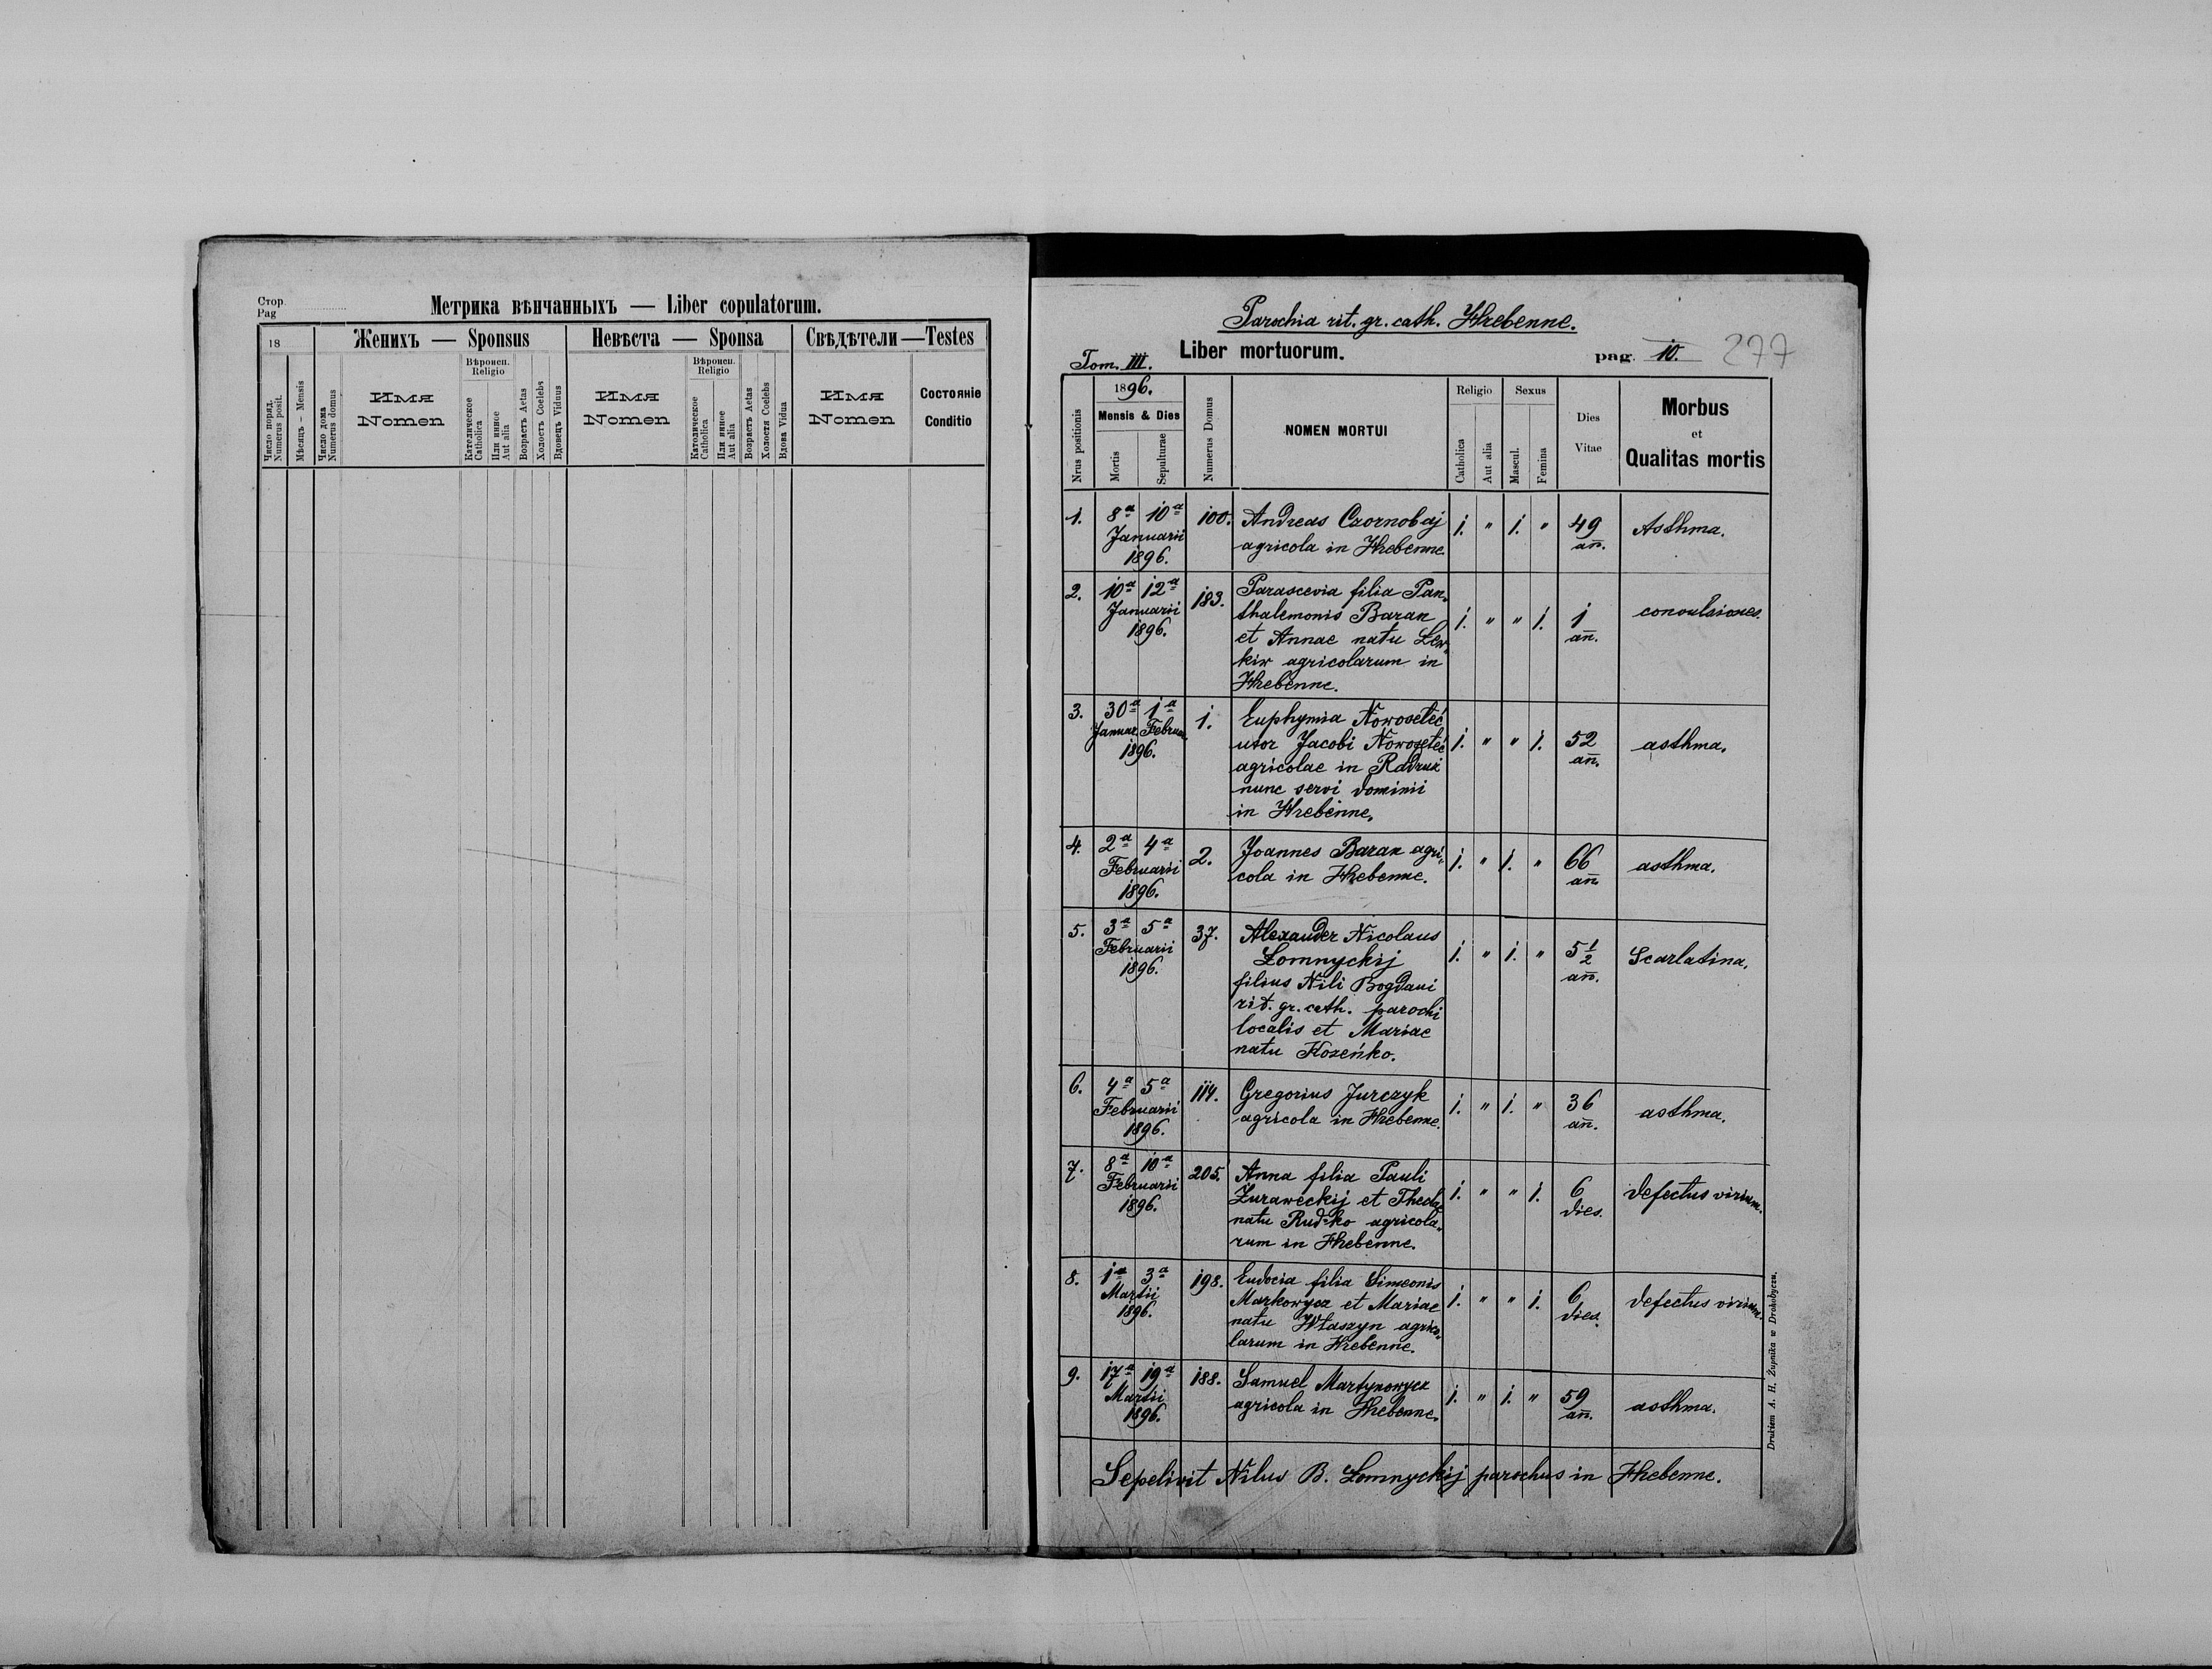 Стор.
Pag
Метрика вѣнчанныхъ — Liber copulatorum.
18
Женихъ — Sponsus
Невѣста — Sponsa
Свѣдѣтели — Testes
Число поряд.
Numerus posit.
Мѣсяцъ – Mensis
Число дома
Numerus domus
Имя
Nomen
Вѣроисп.
Religio
Католическое
Catholica
Или инное
Aut alia
Возрастъ Aetas
Холостъ Coelebs
Вдовецъ Viduus
Имя
Nomen
Вѣроисп.
Religio
Католическое
Catholica
Или инное
Aut alia
Возрастъ Aetas
Холостя Coelebs
Вдова Vidua
Имя
Nomen
Состояніе
Conditio
Parochia rit. gr. cath. Hrebenne.
Tom. III. Liber mortuorum. pag. 10. 277
Nrus positionis
1896.
Mensis & Dies
Mortis
Sepulturae
Numerus Domus
NOMEN MORTUI
Religio
Catholica
Aut alia
Sexus
Mascul.
Femina
Dies
Vitae
Morbus
et
Qualitas mortis
1. 8ª 10ª 100. Andreas Czornobaj 1. " 1. " 49 Asthma.
Januarii agricola in Hrebenne. an̅.
1896.
2. 10ª 12ª 183. Parascevia filia Pan„
Januarii thalemonis Baran 1. " " 1. 1 convulsiones.
1896. et Annae natu Lew„ an̅.
kiw agricolarum in
Hrebenne.
3. 30ª 1ª 1. Euphymia Nowoseleć
Januar. Februar. uxor Jacobi Nowoseleć 1. " " 1. 52 asthma.
1896. agricolae in Radruż an̅.
nunc servi dominii
in Hrebenne.
4. 2ª 4ª 2. Joannes Baran agri„ 1. " 1. " 66 asthma.
Februarii cola in Hrebenne. an̅.
1896.
5. 3ª 5ª 37. Alexander Nicolaus
Februarii Łomnyckij 1. " 1. " 5 1/2 Scarlatina.
1896. filius Nili Bogdani an̅.
rit. gr. cath. parochi
localis et Mariae
natu Kozeńko.
6. 4ª 5ª 114. Gregorius Jurczyk 1. " 1. " 36 asthma.
Februarii agricola in Hrebenne. an̅.
1896.
7. 8ª 10ª 205. Anna filia Pauli
Februarii Żuraweckij et Theclae 1. " " 1. 6 defectus virium.
1896. natu Rudko agricola„ dies.
rum in Hrebenne.
8. 1ª 3ª 198. Eudocia filia Simeonis
Martii Markowycz et Mariae 1. " " 1. 6 defectus virium.
1896. natu Własyn agrico„ dies.
larum in Hrebenne.
9. 17ª 19ª 188. Samuel Martynowycz 1. " 1. " 59 asthma.
Martii agricola in Hrebenne. an̅.
1896.
Sepelivit Nilus B. Łomnyckij parochus in Hrebenne.
Drukiem A. H. Żupnika w Drohobyczu.